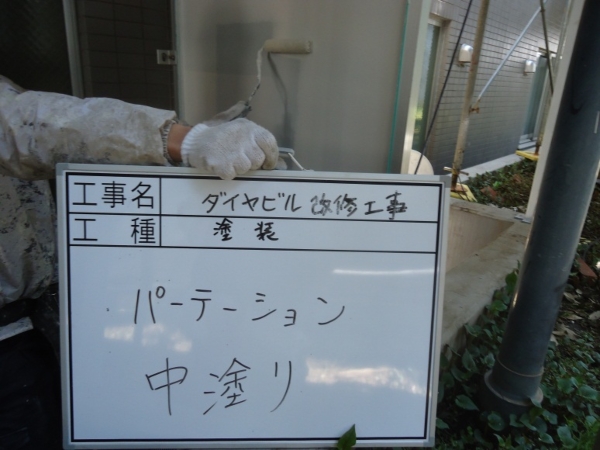 工事名 ダイヤビル 改修工事
工種 塗装
パーテーション
中塗り